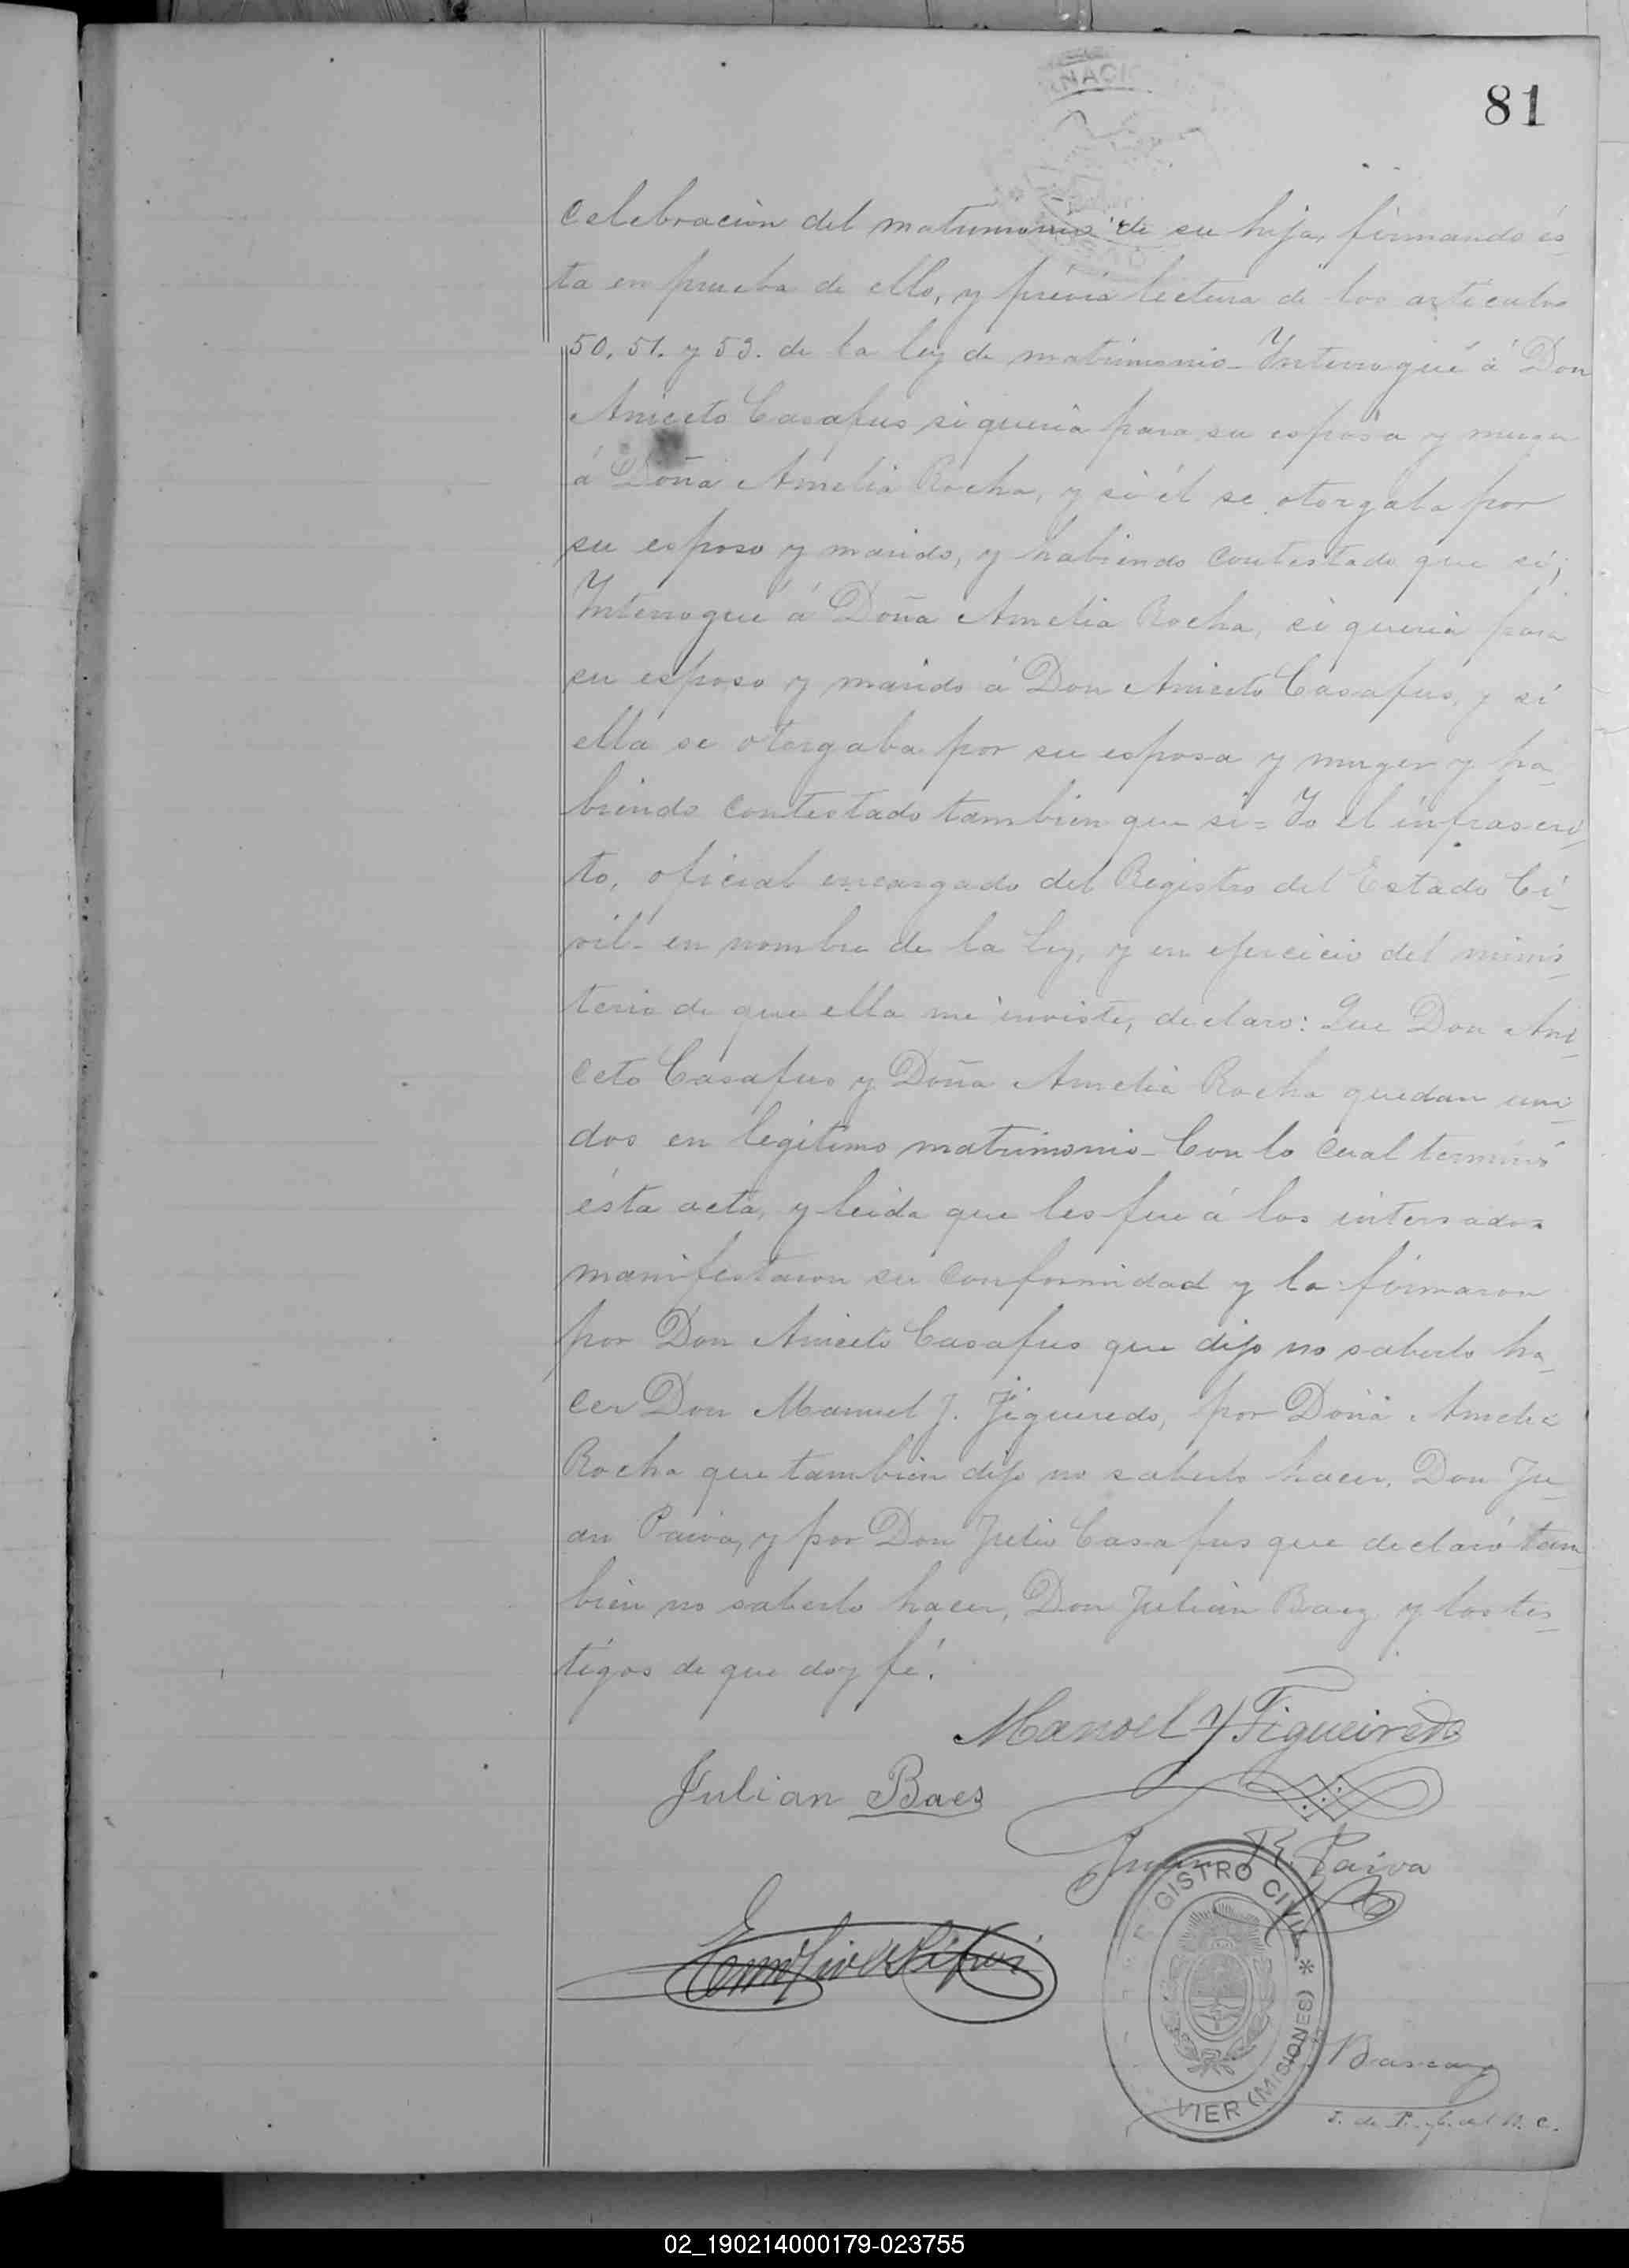 81
celebración del matrimonio de su hija, firmando és-
ta en prueba de ello, y prévia lectura de los articulos
50, 51. y 53. de la ley de matrimonio - Interrogué á Don
Aniceto Casafus si queria para su esposa y muger
á Doña Amelia Rocha, y si él se otorgaba por
su esposo y marido, y habiendo contestado que si;
Interrogué á Doña Amelia Rocha, si queria para
su esposo y marido á Don Aniceto Casafus, y si
ella se otorgaba por su esposa y muger y ha-
biendo contestado tambien que si = Yo el infrascri-
to, oficial encargado del Registro del Estado Ci-
vil - en nombre de la ley, y en ejercicio del minis-
terio de que ella me inviste, declaro: Que Don Ani-
ceto Casafus y Doña Amelia Rocha quedan uni-
dos en legitimo matrimonio - Con lo cual terminó
ésta acta, y leida que les fue á los intersados
manifestaron su conformidad y la firmaron
por Don Aniceto Casafus que dijo no saberlo ha-
cer Don Manuel J. Figueredo, por Doña Amelia
Rocha que tambien dijo no saberlo hacer, Don Ju-
an Paiva, y por Don Julio Casafus que declaró tam-
bien no saberlo hacer, Don Julian Baez y los tes-
tigos de que doy fé.
Manoel Y Figueiredo
Julian Baes
Juan R. Paiva
REGISTRO CIVIL * VIER (MISIONES)
J. de P. del R. C.
02_190214000179-023755